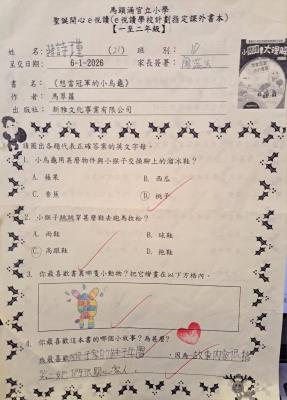 馬頭涌官立小學
聖誕開心e悅讀(e悅讀學校計劃指定課外書本)
【一至二年級】
姓名: (21) 班別: 1D
呈交日期: 6-1-2026 家長簽署:
書名: 《想當冠軍的小烏龜》
作者: 馬翠蘿
出版社: 新雅文化事業有限公司
請圈出各題代表正確答案的英文字母。
1. 小烏龜用甚麼物件與小猴子交換腳上的溜冰鞋?
A. 蘋果 B. 西瓜
C. 香蕉 D. 桃子
2. 小猴子跳跳穿甚麼鞋去跑馬拉松?
A. 雨鞋 B. 球鞋
C. 高跟鞋 D. 拖鞋
3. 你最喜歡書裏哪隻小動物?把它繪畫在以下方格內。
4. 你最喜歡這本書的哪個小故事?為甚麼?
我最喜歡 ,因為故事內容